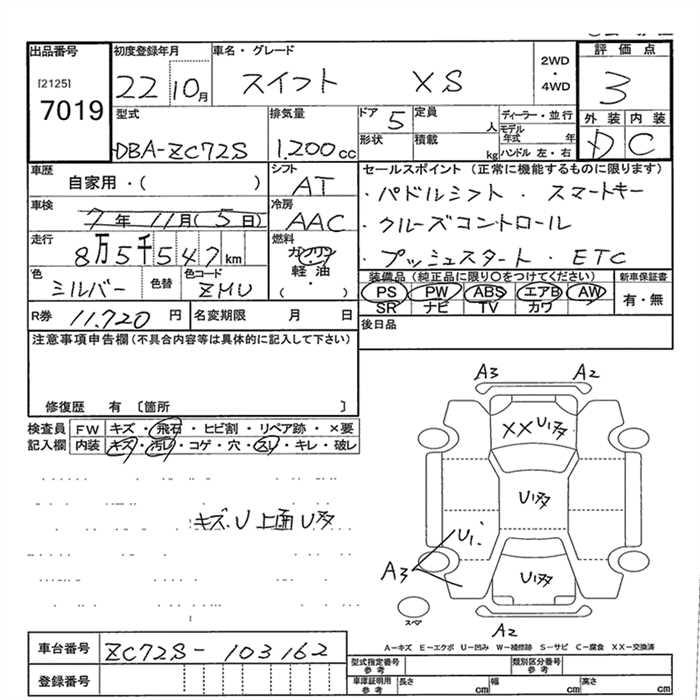 出品番号 初度登録年月 車名・グレード 2WD・4WD 評価点
[2125] 7019 22 10月 スイフト XS 3
型式 排気量 ドア 5 定員 人 ディーラー・並行 外装 内装
DBA-ZC72S 1.200cc 形状 積載 kg モデル年式 年 ハンドル 左・右 D C
車歴 自家用・( ) シフト AT セールスポイント(正常に機能するものに限ります)
車検 7年 11月(5日) 冷房 AAC ・パドルシフト ・スマートキー
・クルーズコントロール
走行 8万5千547km 燃料 ガソリン・軽油・( ) ・プッシュスタート ・ETC
色 ミルバー 色替 色コード ZMU 装備品(純正品に限り○をつけてください) 新車保証書
PS PW ABS エアB AW 有・無
SR ナビ TV カワ
R券 11,720円 名変期限 月 日 後日品
注意事項申告欄(不具合内容等は具体的に記入して下さい)
修復歴 有 〔箇所 〕
検査員 FW キズ・飛石・ヒビ割・リペア跡・×要
記入欄 内装 キズ・汚レ・コゲ・穴・スレ・キレ・破レ
A3 A2
XX U1多
U1多
キズ、U 上面 U多
U1
A3
U1多
スペア
A2
A-キズ E-エクボ U-凹み W-補修跡 S-サビ C-腐食 XX-交換済
車台番号 ZC72S-103162
登録番号
型式指定番号 参考 類別区分番号 参考
車庫証明用 参考 長さ cm 幅 cm 高さ cm